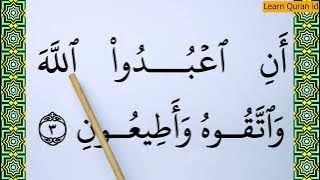 Learn Quran id
أَنِ ٱعْبُدُوا۟ ٱللَّهَ
وَٱتَّقُوهُ وَأَطِيعُونِ ٣